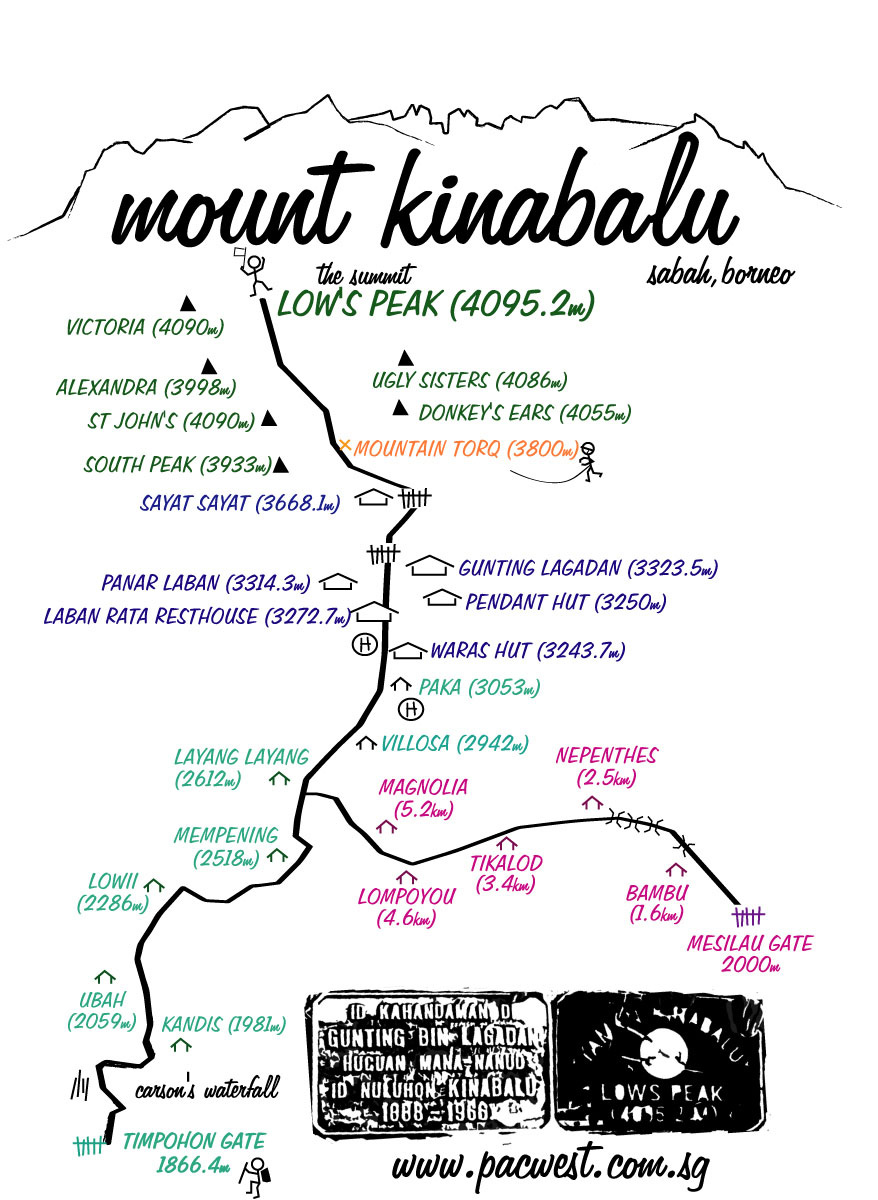 mount kinabalu
sabah, borneo
the summit
LOW'S PEAK (4095.2m)
VICTORIA (4090m)
ALEXANDRA (3998m)
UGLY SISTERS (4086m)
ST JOHN'S (4090m)
DONKEY'S EARS (4055m)
MOUNTAIN TORQ (3800m)
SOUTH PEAK (3933m)
SAYAT SAYAT (3668.1m)
GUNTING LAGADAN (3323.5m)
PANAR LABAN (3314.3m)
PENDANT HUT (3250m)
LABAN RATA RESTHOUSE (3272.7m)
H
WARAS HUT (3243.7m)
PAKA (3053m)
H
VILLOSA (2942m)
LAYANG LAYANG
(2612m)
NEPENTHES
(2.5km)
MAGNOLIA
(5.2km)
MEMPENING
(2518m)
TIKALOD
(3.4km)
LOWII
(2286m)
LOMPOYOU
(4.6km)
BAMBU
(1.6km)
MESILAU GATE
2000m
UBAH
(2059m)
KANDIS (1981m)
carson's waterfall
TIMPOHON GATE
1866.4m
GUNTING BIN LAGADAN
ID NULUHON KINABALU
1888 - 1966
LOWS PEAK
(4095.2M)
www.pacwest.com.sg